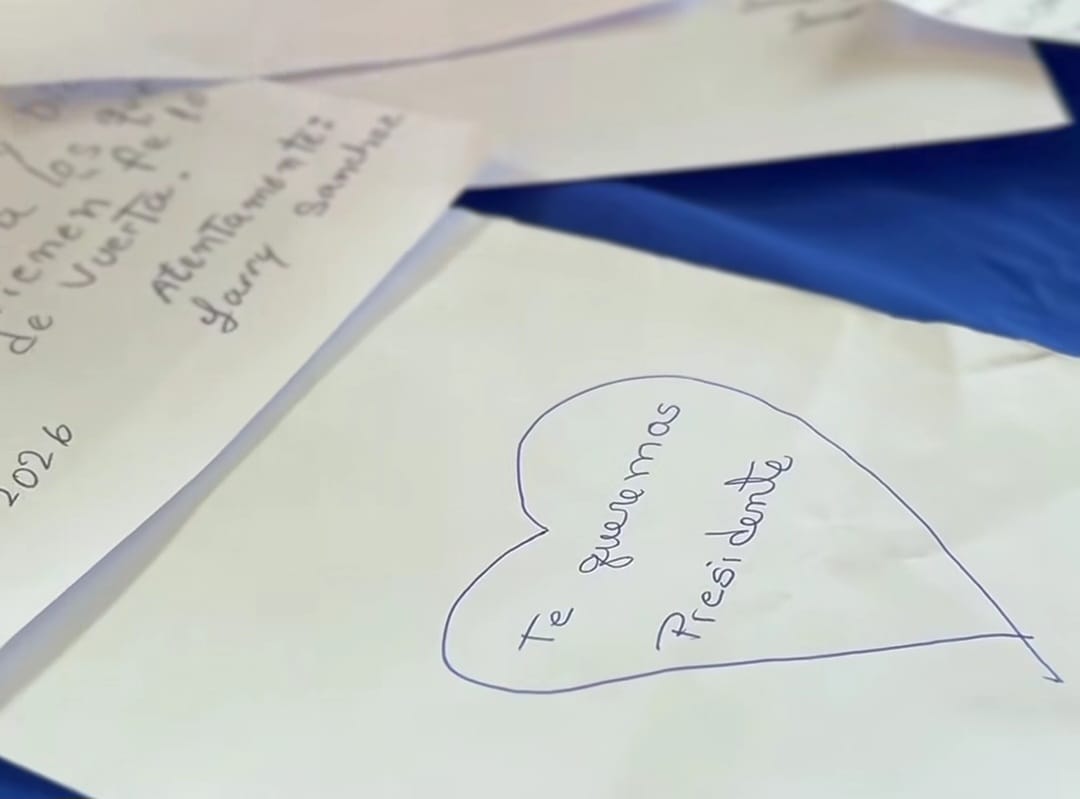 a los que
tienen fe
de vuerta.
Atentamente:
Larry Sanchez
2026
Te queremos
Presidente